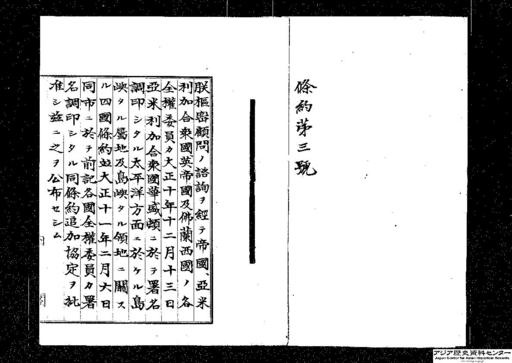 條約第三號
朕樞密顧問ノ諮詢ヲ經テ帝國、亞米
利加合衆國英帝國及佛蘭西國ノ各
全權委員カ大正十年十二月十三日
亞米利加合衆國華盛頓ニ於テ署名
調印シタル太平洋方面ニ於ケル島
嶼タル屬地及島嶼タル領地ニ關ス
ル四國條約竝大正十一年二月六日
同市ニ於テ前記各國全權委員カ署
名調印シタル同條約追加協定ヲ批
准シ茲ニ之ヲ公布セシム
アジア歴史資料センター
Japan Center for Asian Historical Records